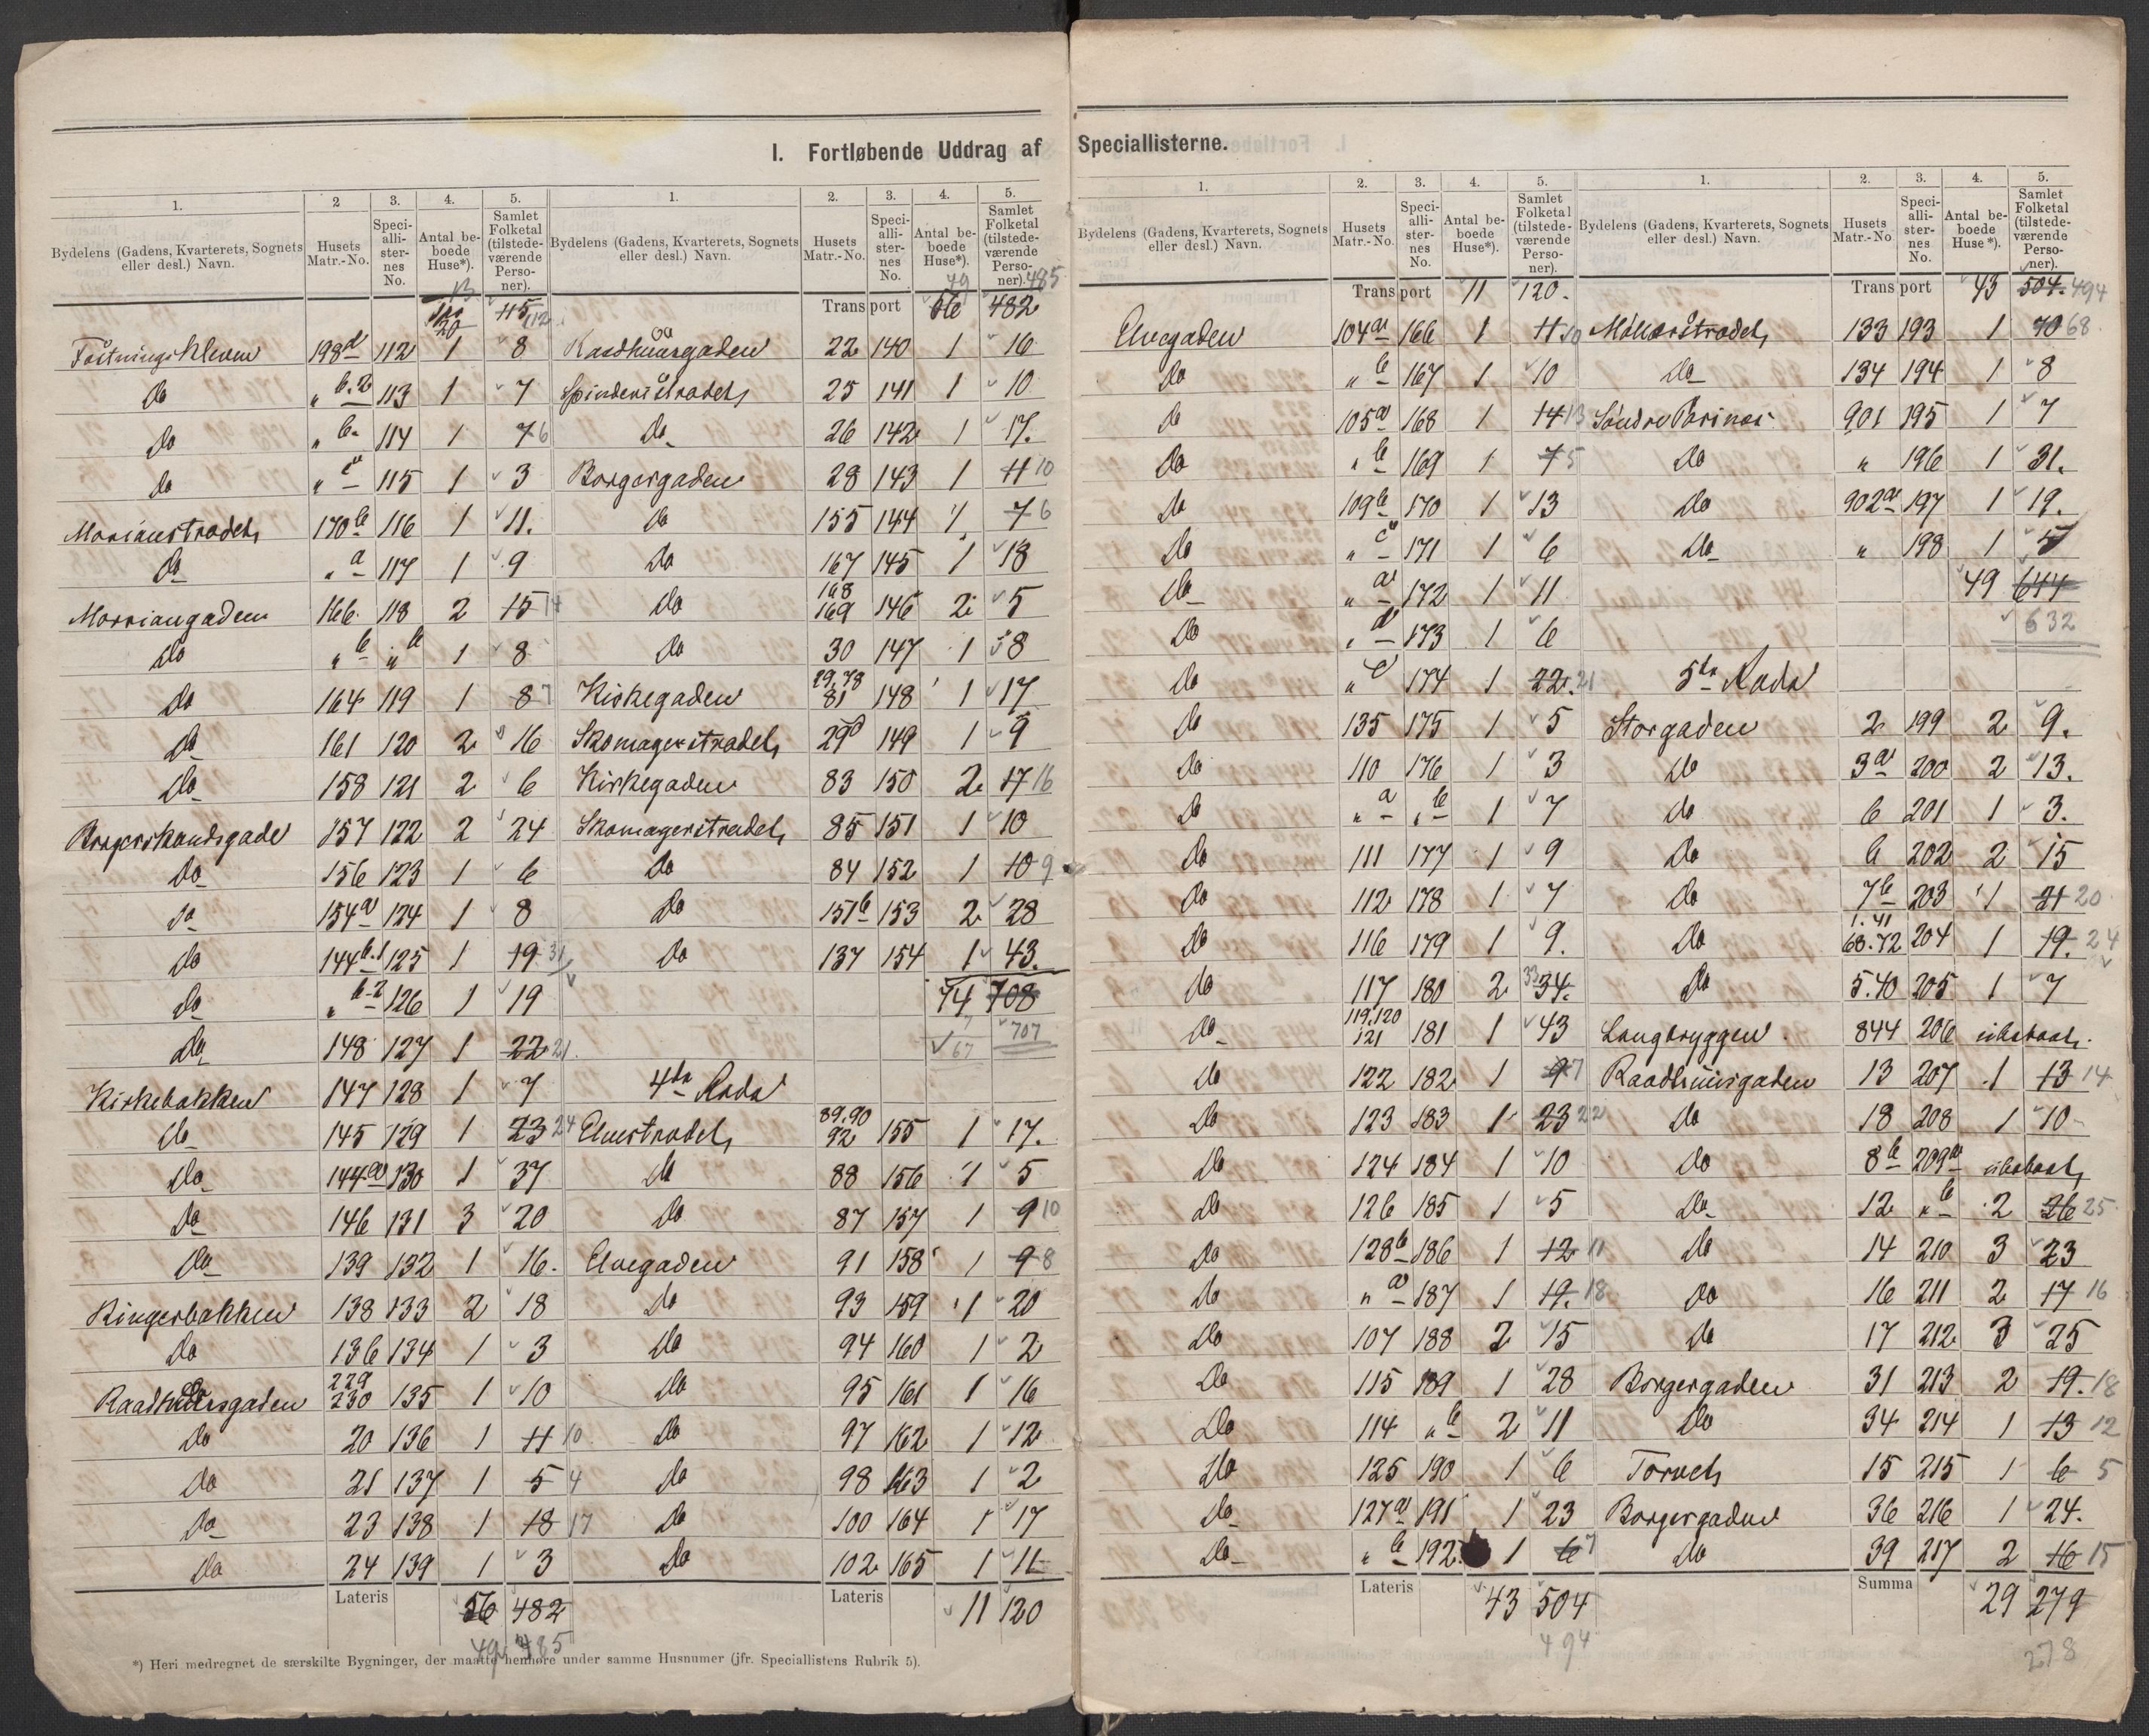 I. Fortløbende Uddrag af Speciallisterne.
1. 2 3. 4. 5. 1. 2. 3. 4. 5.
Bydelens (Gadens, Kvarterets, Sognets eller desl.) Navn. Husets Matr.-No. Speci-alli-ster-nes No. Antal be-boede Huse*). Samlet Folketal (tilstede-værende Perso-ner).
13 112
20 115
198d 112 1 8
do " b.2 113 1 7
do " b. 114 1 7 6
do " c 115 1 3
170b 116 1 11.
do " a 117 1 9
166. 118 2 15 14
do " b " b 1 8
do 164 119 1 8 7
do 161 120 2 16
do 158 121 2 6
157 122 2 24
do 156 123 1 6
do 154a 124 1 8
do 144b.1 125 1 19 31
do " b-2 126 1 19
do 148 127 1 22 21
Kirkebakken 147 128 1 7
do 145 129 1 23 24
do 144a 130 1 37
do 146 131 3 20
do 139 132 1 16.
Ringerbakken 138 133 2 18
do 136 134 1 3
Raadhusgaden 229 230 135 1 10
do 20 136 1 11 10
do 21 137 1 5 4
do 23 138 1 18 17
do 24 139 1 3
Lateris 56 482
49 485
Bydelens (Gadens, Kvarterets, Sognets eller desl.) Navn. Husets Matr.-No. Speci-alli-ster-nes No. Antal be-boede Huse*). Samlet Folketal (tilstede-værende Perso-ner).
49 485
Transport 56 482
Raadhuusgaden 22 140 1 16
Spinderistrædet 25 141 1 10
do 26 142 1 17.
Borgergaden 28 143 1 11 10
do 155 144 1 7 6
do 167 145 1 18
do 168 169 146 2 5
do 30 147 1 38
Kirkegaden 29,78 81 148 1 17
Skomagerstrædet 29d 149 1 9
Kirkegaden 83 150 2 17 16
Skomagerstrædet 85 151 1 10
do 84 152 1 10 9
do 151b 153 2 28
do 137 154 1 43.
74 708
67 707
4de Rode
Elvestrædet 89,90 92 155 1 17.
do 88 156 1 5
do 87 157 1 9 10
Elvegaden 91 158 1 9 8
do 93 159 1 20
do 94 160 1 2
do 95 161 1 16
do 97 162 1 12
do 98 163 1 2
do 100 164 1 17
do 102 165 1 11
Lateris 11 120
*) Heri medregnet de særskilte Bygninger, der maatte henhøre under samme Husnumer (jfr. Speciallistens Rubrik 5).
1. 2. 3. 4. 5. 1. 2. 3. 4. 5.
Bydelens (Gadens, Kvarterets, Sognets eller desl.) Navn. Husets Matr.-No. Speci-alli-ster-nes No. Antal be-boede Huse*). Samlet Folketal (tilstede-værende Perso-ner).
Transport 11 120.
Elvegaden 104a 166 1 11 10
do " b 167 1 10
do 105a 168 1 14 13
do " b 169 1 7 5
do 109b 170 1 13
do " c 171 1 6
do " a 172 1 11
do " d 173 1 6
do " e 174 1 22. 21
do 135 175 1 5
do 110 176 1 3
do " a " b 1 7
do 111 177 1 9
do 112 178 1 7
do 116 179 1 9.
do 117 180 2 34. 33
do 119,120 121 181 1 43
do 122 182 1 9 7
do 123 183 1 23 22
do 124 184 1 10
do 126 185 1 5
do 128b 186 1 12 11
do " a 187 1 19. 18
do 107 188 2 15
do 115 189 1 28
do 114 " b 2 11
do 125 190 1 6
do 127a 191 1 23
do " b 192 1 6 7
Lateris 43 504
494
Bydelens (Gadens, Kvarterets, Sognets eller desl.) Navn. Husets Matr.-No. Speci-alli-ster-nes No. Antal be-boede Huse*). Samlet Folketal (tilstede-værende Perso-ner).
Transport 43 504. 494
Møllerstrædet 133 193 1 70 68.
do 134 194 1 8
Søndre 901 195 1 7
do " 196 1 31.
do 902a 197 1 19.
do " 198 1 5
49 644
632
5te Rode
Storgaden 2 199 2 9.
do 3a 200 2 13.
do 6 201 1 3.
do 6 202 2 15
do 7b 203 1 21 20
do 1.41 68.72 204 1 19. 24
do 5.40 205 1 7
Langbryggen 844 206 ubeboet.
Raadhuusgaden 13 207 1 13 14
do 18 208 1 10
do 8b 209a ubeboet
do 12 " b 2 26 25
do 14 210 3 23
do 16 211 2 17 16
do 17 212 3 25
Borgergaden 31 213 2 19. 18
do 34 214 1 13 12
Torvet 15 215 1 6 5
Borgergaden 36 216 1 24.
do 39 217 2 16 15
Summa 29 279
278